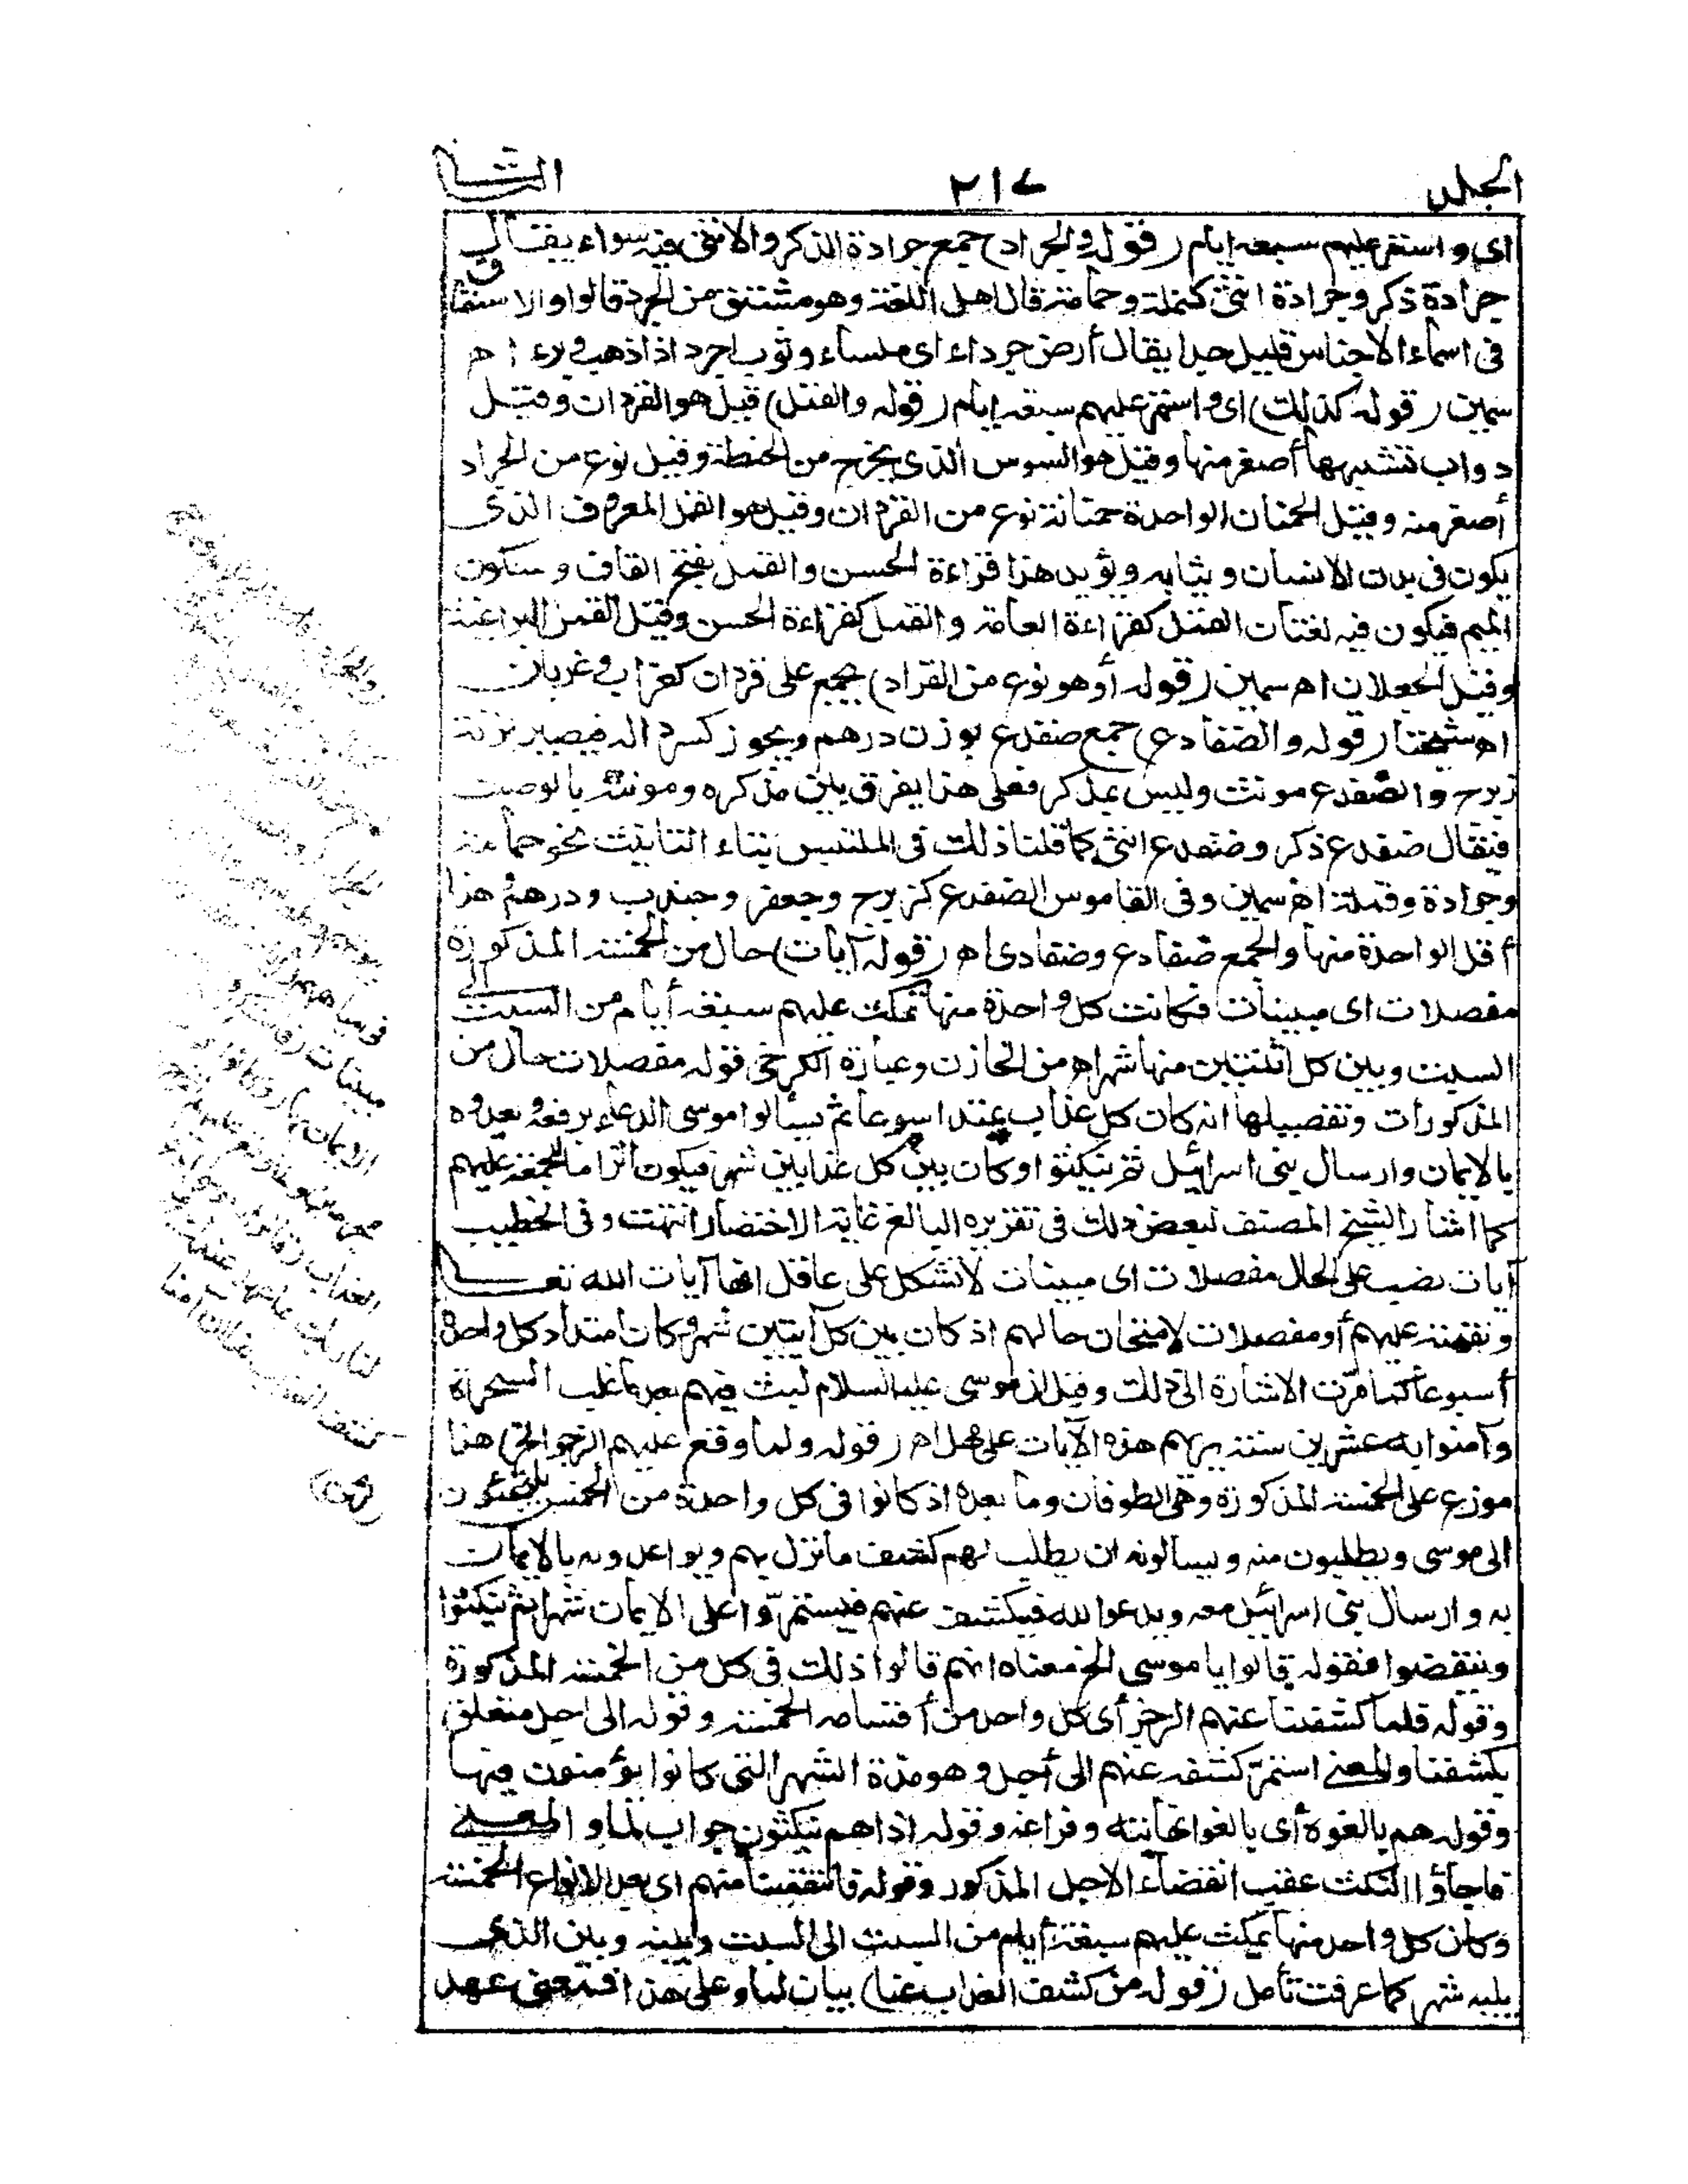 الجلد
٢١٧
الثا
اى واستمر عليهم سبعة ايام (قوله والجراد) جمع جرادة الذكر والانثى فيه سواء يقال
جرادة ذكر وجرادة انثى كنملة وحمامة قال اهل اللغة وهو مشتق من الجرد قالوا والاشتقاق
فى اسماء الاجناس قليل جدا يقال أرض جرداء اى ملساء وثوب اجرد اذا ذهب وبره اه
سمين (قوله كذلك) اى واستمر عليهم سبعة ايام (قوله والقمل) قيل هو القردان وقيل
دواب تشبهها أصغر منها وقيل هو السوس الذى يخرج من الحنطة وقيل نوع من الجراد
أصغر منه وقيل الحمنان الواحدة حمنانة نوع من القردان وقيل هو القمل المعروف الذى
يكون فى بدن الانسان وثيابه ويؤيد هذا قراءة الحسن والقمل بفتح القاف وسكون
الميم فيكون فيه لغتان القمل كقراءة العامة والقمل كقراءة الحسن وقيل القمل البراغيث
وقيل الجعلان اه سمين (قوله أو هو نوع من القراد) يجمع على قردان كغراب وغربان
اه شيخنا (قوله والضفادع) جمع ضفدع بوزن درهم ويجوز كسر داله فيصير بزنة
زبرج والضفدع مونث وليس بمذكر فعلى هذا يفرق بين مذكره ومونثه بالوصف
فيقال ضفدع ذكر وضفدع انثى كما قلنا ذلك فى الملتبس بتاء التانيث نحو حمامة
وجرادة وقملة اه سمين وفى القاموس الضفدع كزبرج وجعفر وجندب ودرهم هذا
أقل الواحدة منها والجمع ضفادع وضفادى اه (قوله آيات) حال من الخمسة المذكورة
مفصلات اى مبينات فكانت كل واحدة منها تمكث عليهم سبعة أيام من السبت الى
السبت وبين كل اثنتين منها شهر اه من الخازن وعبارة الكرخى قوله مفصلات حال من
المذكورات وتفصيلها انه كان كل عذاب يمتد اسبوعا ثم يسألوا موسى الدعاء برفعه ويعدوه
بالايمان وارسال بنى اسرائيل ثم ينكثوا وكان بين كل عذابين شهر فيكون الزاما للحجة عليهم
كما اشار الشيخ المصنف لبعض ذلك فى تقريره البالغ غاية الاختصار انتهت وفى الخطيب
آيات نصب على الحال مفصلات اى مبينات لا تشكل على عاقل انها آيات الله تعالى
ونقمته عليهم أو مفصلات لامتحان حالهم اذ كان بين كل آيتين شهر وكان امتداد كل واحدة
أسبوعا كما مرّت الاشارة الى ذلك وقيل ان موسى عليه السلام لبث فيهم بعد ما غلب السحرة
وآمنوا به عشرين سنة يريهم هذه الآيات على مهل اه (قوله ولما وقع عليهم الرجز الخ) هذا
موزع على الخمسة المذكورة وهى الطوفان وما بعده اذ كانوا فى كل واحدة من الخمس يلتجئون
الى موسى ويطلبون منه ويسالونه ان يطلب لهم كشف ما نزل بهم ويواعدونه بالايمان
به وارسال بنى اسرائيل معه ويدعو الله فيكشف عنهم فيستمرّوا على الايمان شهرا ثم ينكثوا
وينقضوا فقوله قالوا يا موسى الخ معناه انهم قالوا ذلك فى كل من الخمسة المذكورة
وقوله فلما كشفنا عنهم الرجز أى كل واحد من أقسامه الخمسة وقوله الى اجل متعلق
بكشفنا والمعنى استمرّ كشفه عنهم الى أجل وهو مدة الشهر التى كانوا يؤمنون فيها
وقوله هم بالغوه أى بالغوا نهايته وفراغه وقوله اذا هم ينكثون جواب لما والمعنى
فاجاؤا النكث عقب انقضاء الاجل المذكور وقوله فانتقمنا منهم اى بعد الانواع الخمسة
وكان كل واحد منها يمكث عليهم سبعة أيام من السبت الى السبت وبينه وبين الذى
يليه شهر كما عرفت تأمل (قوله من كشف العذاب عنا) بيان لما وعلى هذا فمعنى عهد